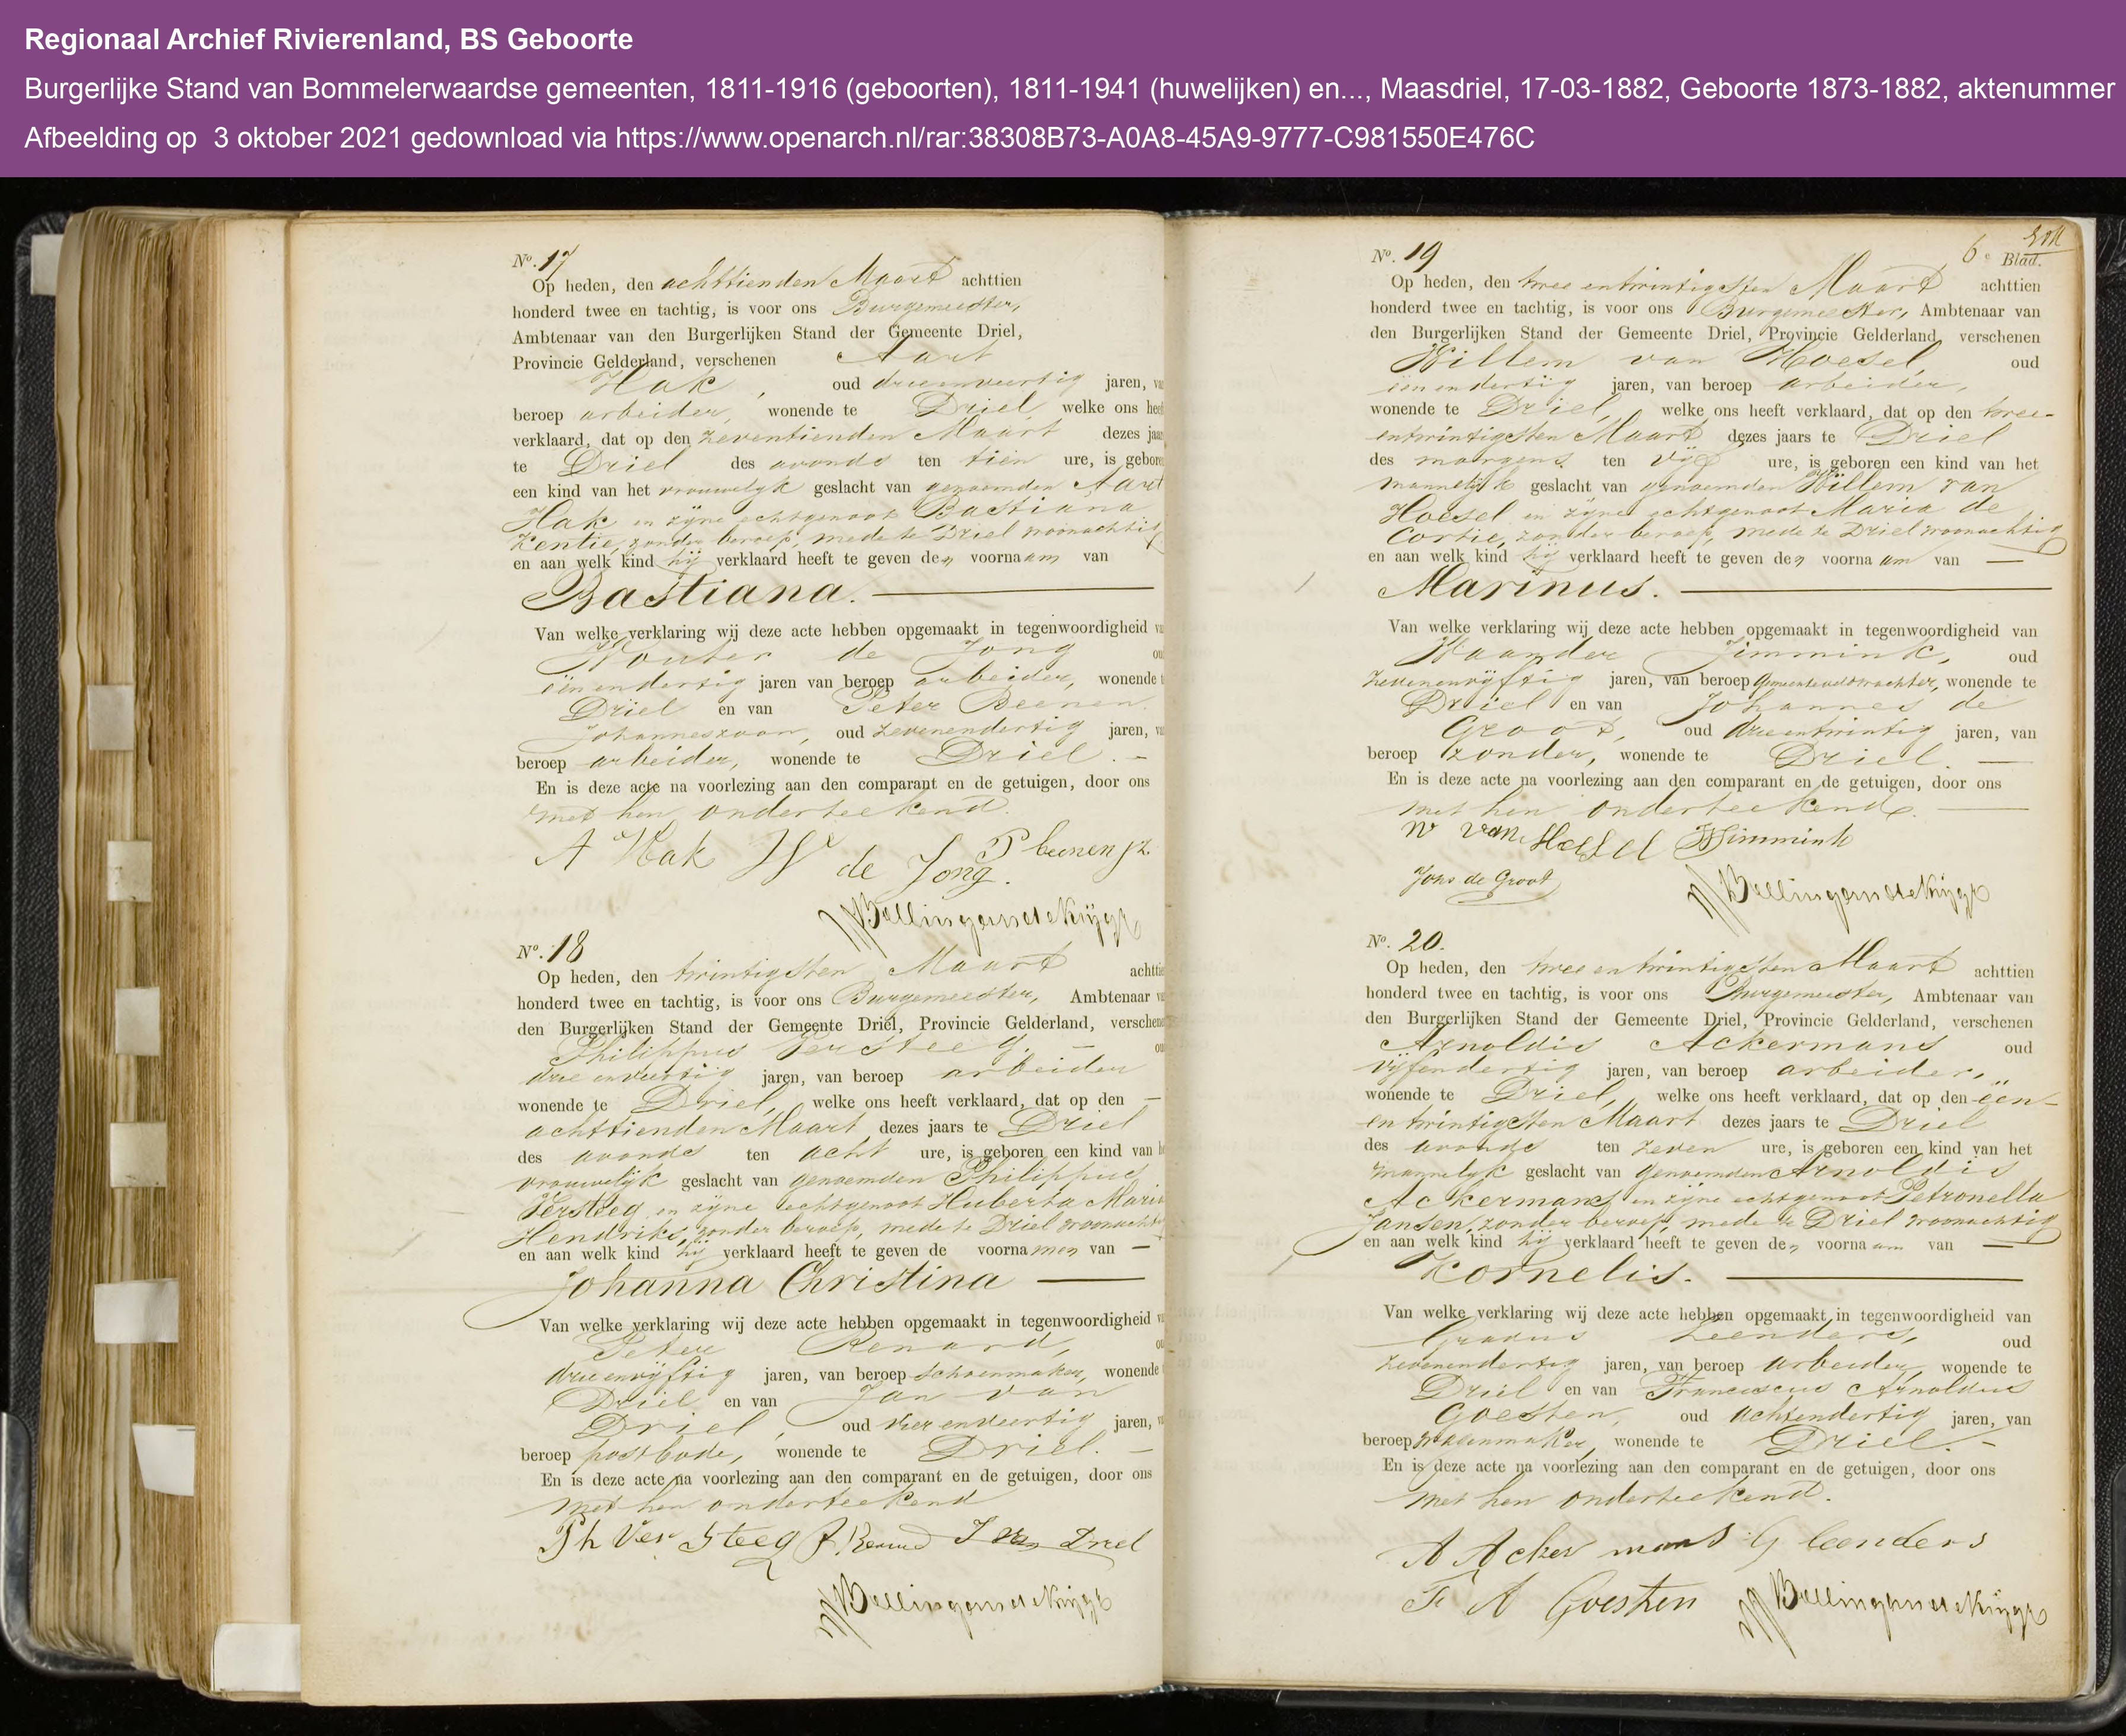 Regionaal Archief Rivierenland, BS Geboorte
Burgerlijke Stand van Bommelerwaardse gemeenten, 1811-1916 (geboorten), 1811-1941 (huwelijken) en..., Maasdriel, 17-03-1882, Geboorte 1873-1882, aktenummer
Afbeelding op 3 oktober 2021 gedownload via https://www.openarch.nl/rar:38308B73-A0A8-45A9-9777-C981550E476C
No. 17
Op heden, den achttienden Maart achttien
honderd twee en tachtig, is voor ons Burgemeester,
Ambtenaar van den Burgerlijken Stand der Gemeente Driel,
Provincie Gelderland, verschenen Aart
Hak, oud drieenveertig jaren, va
beroep arbeider, wonende te Driel, welke ons heeft
verklaard, dat op den zeventienden Maart dezes jaar
te Driel des avonds ten tien ure, is gebore
een kind van het vrouwelijk geslacht van genoemden Aart
Hak en zijne echtgenoot Bastiana
Kentie, zonder beroep, mede te Driel woonachtig
en aan welk kind hij verklaard heeft te geven den voornaam van
Bastiana.
Van welke verklaring wij deze acte hebben opgemaakt in tegenwoordigheid v
Wouter de Jong ou
eenendertig jaren van beroep arbeider, wonende t
Driel en van Peter Beenen
Johanneszoon, oud zevenendertig jaren, v
beroep arbeider, wonende te Driel. –
En is deze acte na voorlezing aan den comparant en de getuigen, door ons
met hen onderteekend.
A Hak W de Jong. P beenen jz.
No. 18
Op heden, den twintigsten Maart achttie
honderd twee en tachtig, is voor ons Burgemeester, Ambtenaar v
den Burgerlijken Stand der Gemeente Driel, Provincie Gelderland, verschene
Philippus Versteeg. – ou
drieenveertig jaren, van beroep arbeider
wonende te Driel, welke ons heeft verklaard, dat op den –
achttienden Maart dezes jaars te Driel
des avonds ten acht ure, is geboren een kind van h
vrouwelijk geslacht van genoemden Philippus
Versteeg en zijne echtgenoot Huberta Maria
Hendriks, zonder beroep, mede te Driel woonachtig
en aan welk kind hij verklaard heeft te geven de voornamen van –
Johanna Christina
Van welke verklaring wij deze acte hebben opgemaakt in tegenwoordigheid v
Peter Renard, ou
drieenvijftig jaren, van beroep schoenmaker, wonende t
Driel en van Jan van
Driel, oud vierenveertig jaren, v
beroep postbode, wonende te Driel. –
En is deze acte na voorlezing aan den comparant en de getuigen, door ons
met hen onderteekend
Ph Ver Steeg P Renard J van Driel
6e Blad.
No. 19
Op heden, den twee entwintigsten Maart achttien
honderd twee en tachtig, is voor ons Burgemeester, Ambtenaar van
den Burgerlijken Stand der Gemeente Driel, Provincie Gelderland, verschenen
Willem van Hoesel, oud
eenendertig jaren, van beroep arbeider,
wonende te Driel, welke ons heeft verklaard, dat op den twee-
entwintigsten Maart dezes jaars te Driel
des morgens ten vijf ure, is geboren een kind van het
mannelijk geslacht van genoemden Willem van
Hoesel en zijne echtgenoot Maria de
Cortie, zonder beroep, mede te Driel woonachtig
en aan welk kind hij verklaard heeft te geven den voornaam van –
Marinus.
Van welke verklaring wij deze acte hebben opgemaakt in tegenwoordigheid van
Waander Jimmink, oud
zevenenvijftig jaren, van beroep gemeenteveldwachter, wonende te
Driel en van Johannes de
Groot, oud drieentwintig jaren, van
beroep zonder, wonende te Driel. –
En is deze acte na voorlezing aan den comparant en de getuigen, door ons
met hen onderteekend.
W van Hoesel WJimmink
Johs de Groot
No. 20.
Op heden, den twee entwintigsten Maart achttien
honderd twee en tachtig, is voor ons Burgemeester, Ambtenaar van
den Burgerlijken Stand der Gemeente Driel, Provincie Gelderland, verschenen
Arnoldis Ackermans oud
vijfendertig jaren, van beroep arbeider,
wonende te Driel, welke ons heeft verklaard, dat op den één-
entwintigsten Maart dezes jaars te Driel
des avonds ten zeven ure, is geboren een kind van het
mannelijk geslacht van genoemden Arnoldis
Ackermans en zijne echtgenoot Petronella
Jansen, zonder beroep, mede te Driel woonachtig
en aan welk kind hij verklaard heeft te geven den voornaam van –
Kornelis.
Van welke verklaring wij deze acte hebben opgemaakt in tegenwoordigheid van
Gradus Leenders, oud
zevenendertig jaren, van beroep arbeider, wonende te
Driel en van Franciscus Arnoldus
Goesten, oud achtendertig jaren, van
beroep wagenmaker, wonende te Driel. –
En is deze acte na voorlezing aan den comparant en de getuigen, door ons
met hen onderteekend.
A Ackermans G leenders
F A Goesten